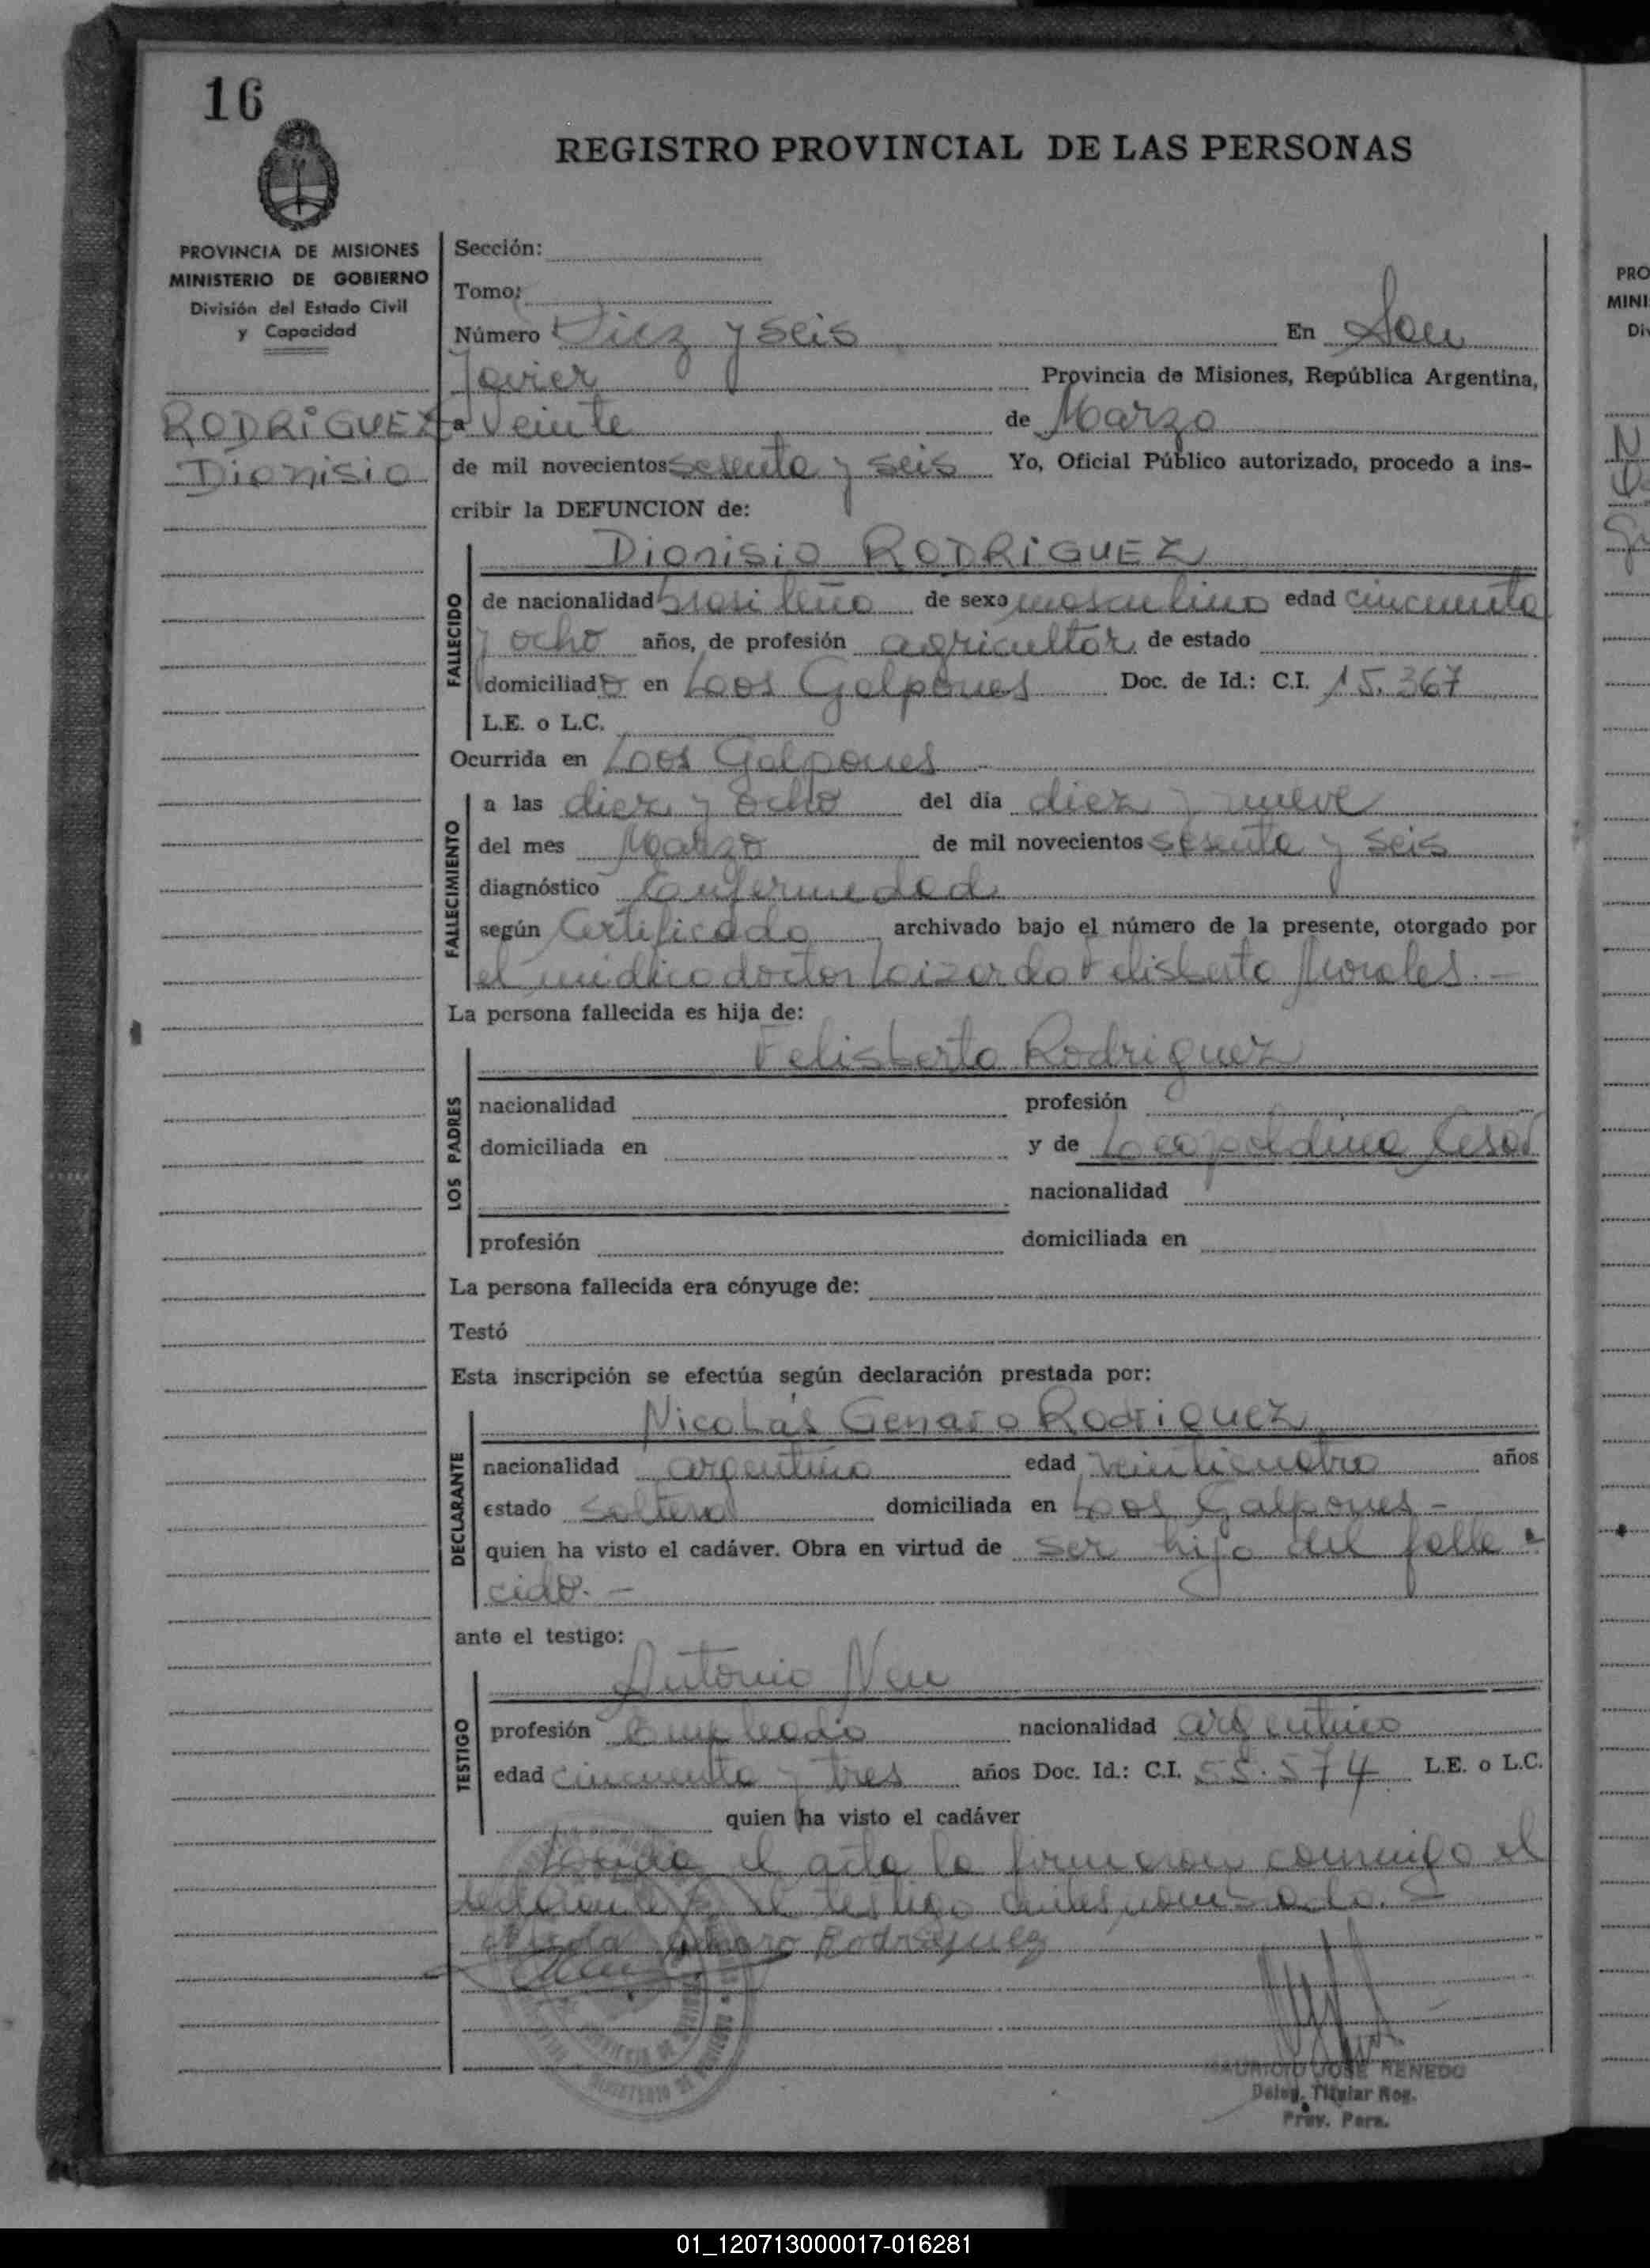 16
REGISTRO PROVINCIAL DE LAS PERSONAS
PROVINCIA DE MISIONES
MINISTERIO DE GOBIERNO
División del Estado Civil
y Capacidad
RODRIGUEZ
Dionisio
Sección:
Tomo:
Número Diez y seis En San
Javier Provincia de Misiones, República Argentina,
a veinte de Marzo
de mil novecientos sesenta y seis Yo, Oficial Público autorizado, procedo a ins-
cribir la DEFUNCION de:
Dionisio RODRIGUEZ
FALLECIDO
de nacionalidad brasileño de sexo masculino edad cincuenta
y ocho años, de profesión agricultor de estado
domiciliado en Loos Galpones Doc. de Id.: C.I. 15.367
L.E. o L.C.
Ocurrida en Loos Galpones
FALLECIMIENTO
a las diez y ocho del día diez y nueve
del mes Marzo de mil novecientos sesenta y seis
diagnóstico Enfermedad
según Certificado archivado bajo el número de la presente, otorgado por
el médico doctor Felisberto Morales. -
La persona fallecida es hija de:
Felisberto Rodriguez
LOS PADRES
nacionalidad profesión
domiciliada en y de
nacionalidad
profesión domiciliada en
La persona fallecida era cónyuge de:
Testó
Esta inscripción se efectúa según declaración prestada por:
Nicolás Genaro Rodriguez
DECLARANTE
nacionalidad argentino edad veinticuatro años
estado Soltero domiciliada en Loos Galpones -
quien ha visto el cadáver. Obra en virtud de ser hijo del falle-
cido. -
ante el testigo:
Antonio Neu
TESTIGO
profesión Empleado nacionalidad argentino
edad cincuenta y tres años Doc. Id.: C.I. 55.574 L.E. o L.C.
quien ha visto el cadáver
Leida el acta la firmaron conmigo el
declarante y el testigo antes nombrado. -
Genaro Rodriguez
MAURICIO JOSE RENEDO
Deleg. Titular Reg.
Prov. Pers.
PRO
MINI
Di
01_120713000017-016281